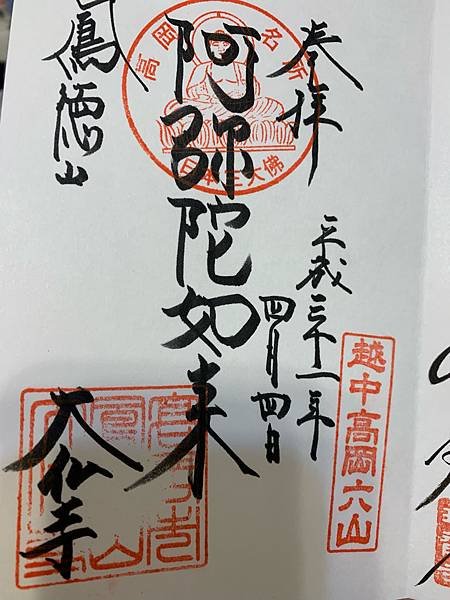 奉拝
平成三十一年
四月四日
越中高岡六山
高岡名所
日本三大佛
阿弥陀如来
鳳徳山
大仏寺